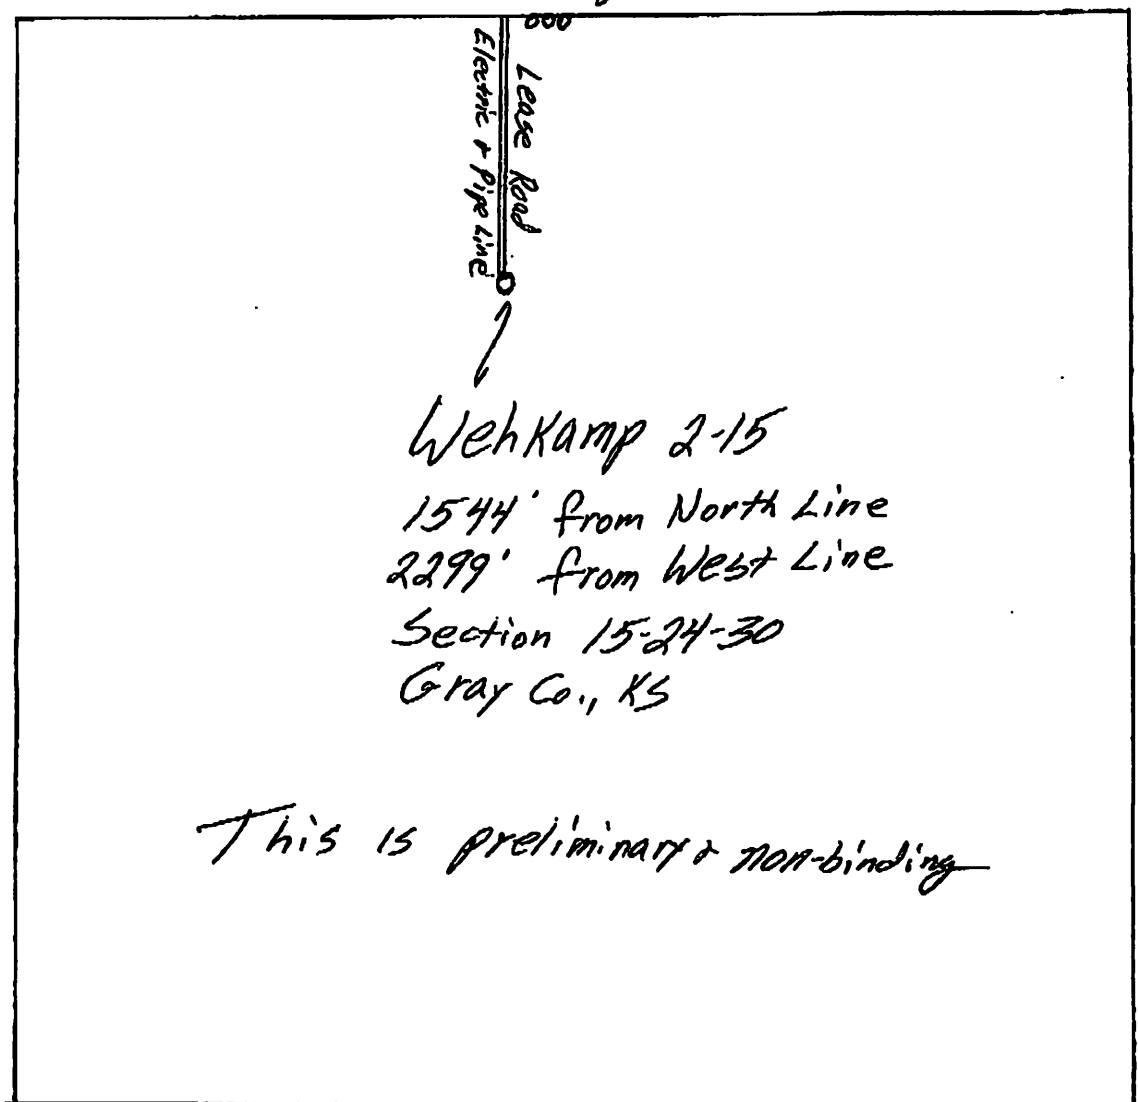 Lease Road
Electric & Pipe Line
Wehkamp 2-15
1544' from North Line
2299' from West Line
Section 15-24-30
Gray Co., KS
This is preliminary & non-binding